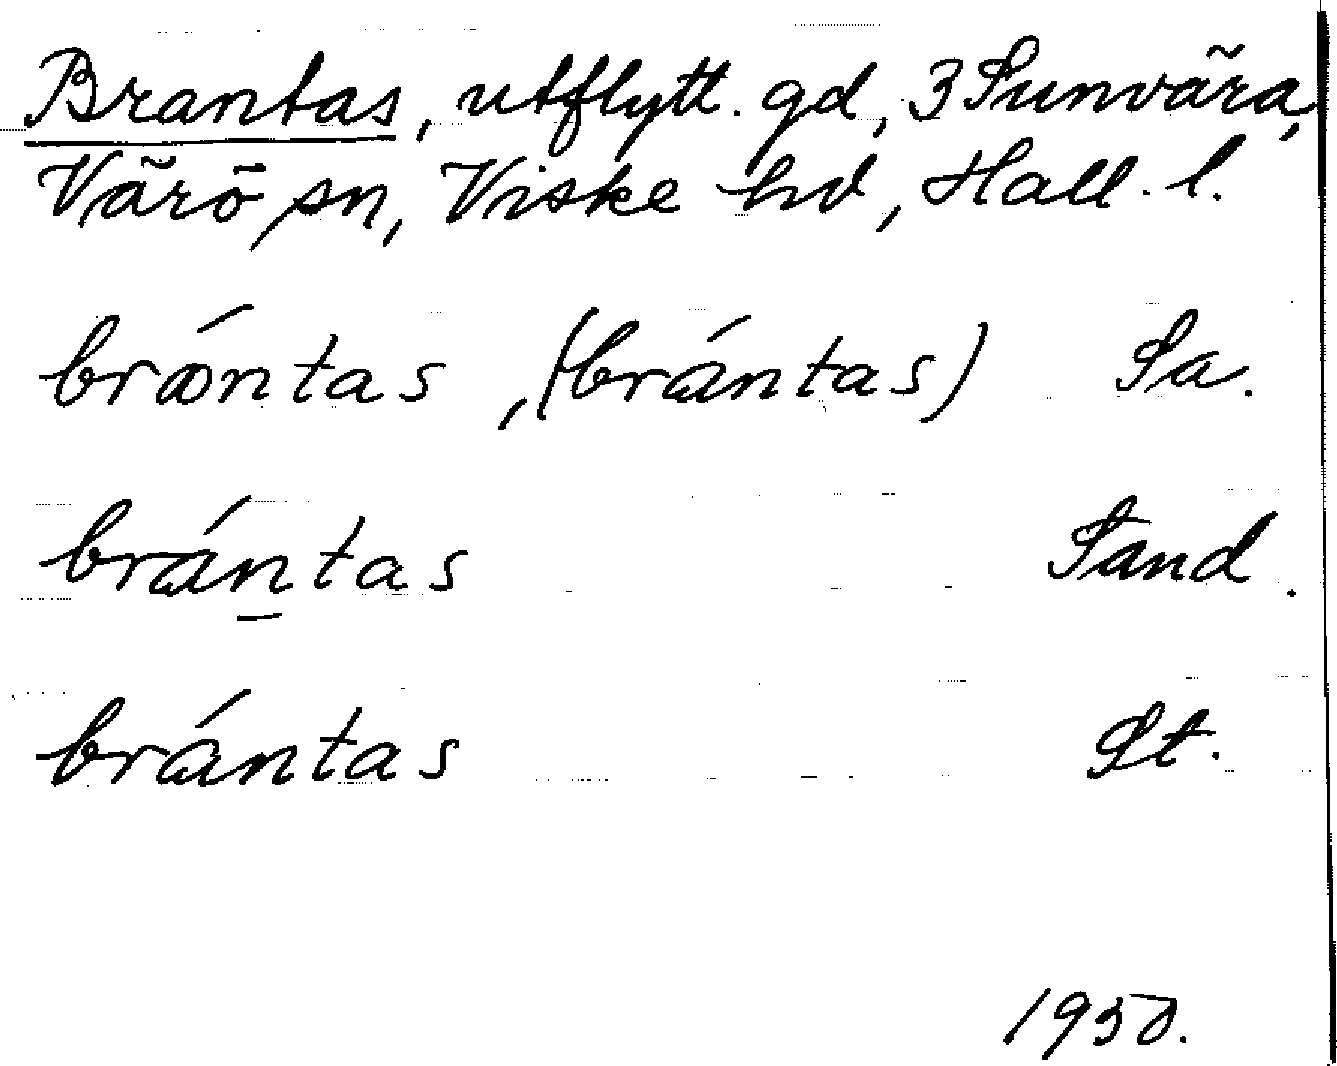 Brantas, utflytt. gd, 3 Sunvära,
Värö sn, Viske hd, Hall. l.
bröntas, (brántas) Sa.
brántas Sand.
brántas St.
1950.